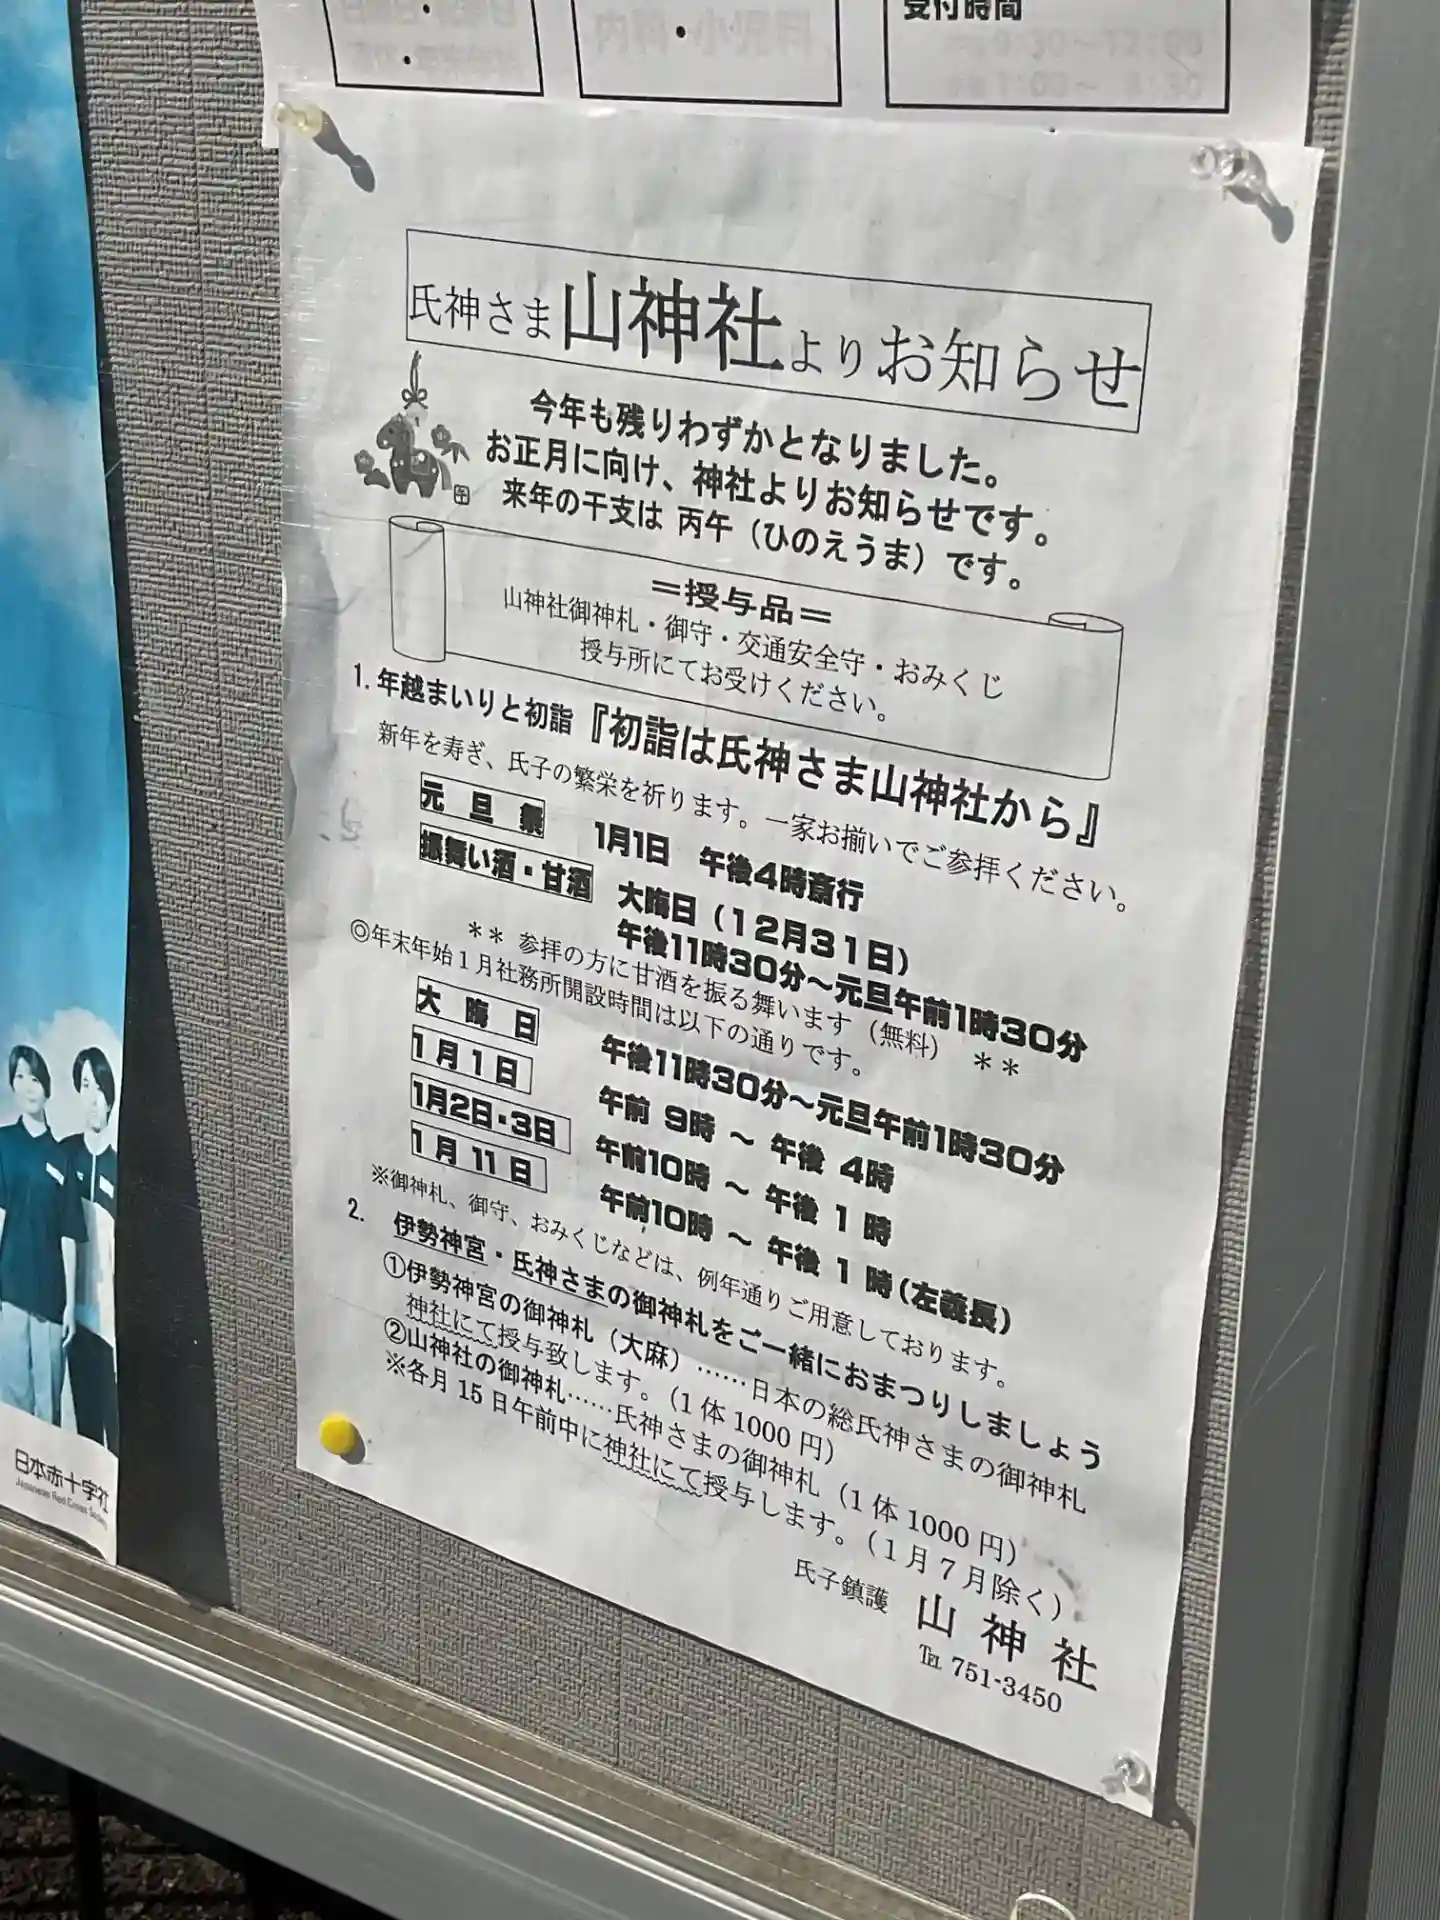 内科・小児科
受付時間
9:30〜12:00
氏神さま山神社よりお知らせ
今年も残りわずかとなりました。
お正月に向け、神社よりお知らせです。
来年の干支は 丙午（ひのえうま）です。
＝授与品＝
山神社御神札・御守・交通安全守・おみくじ
授与所にてお受けください。
1. 年越まいりと初詣『初詣は氏神さま山神社から』
新年を寿ぎ、氏子の繁栄を祈ります。一家お揃いでご参拝ください。
元旦祭 1月1日 午後4時斎行
振舞い酒・甘酒 大晦日（12月31日）
午後11時30分〜元旦午前1時30分
＊＊ 参拝の方に甘酒を振る舞います（無料） ＊＊
◎年末年始1月社務所開設時間は以下の通りです。
大晦日 午後11時30分〜元旦午前1時30分
1月1日 午前 9時 〜 午後 4時
1月2日・3日 午前10時 〜 午後 1時
1月11日 午前10時 〜 午後 1時（左義長）
※御神札、御守、おみくじなどは、例年通りご用意しております。
2. 伊勢神宮・氏神さまの御神札をご一緒におまつりしましょう
①伊勢神宮の御神札（大麻）……日本の総氏神さまの御神札
神社にて授与致します。（1体1000円）
②山神社の御神札……氏神さまの御神札（1体1000円）
※各月15日午前中に神社にて授与します。（1月7月除く）
氏子鎮護 山神社
℡ 751-3450
日本赤十字社
Japanese Red Cross Society